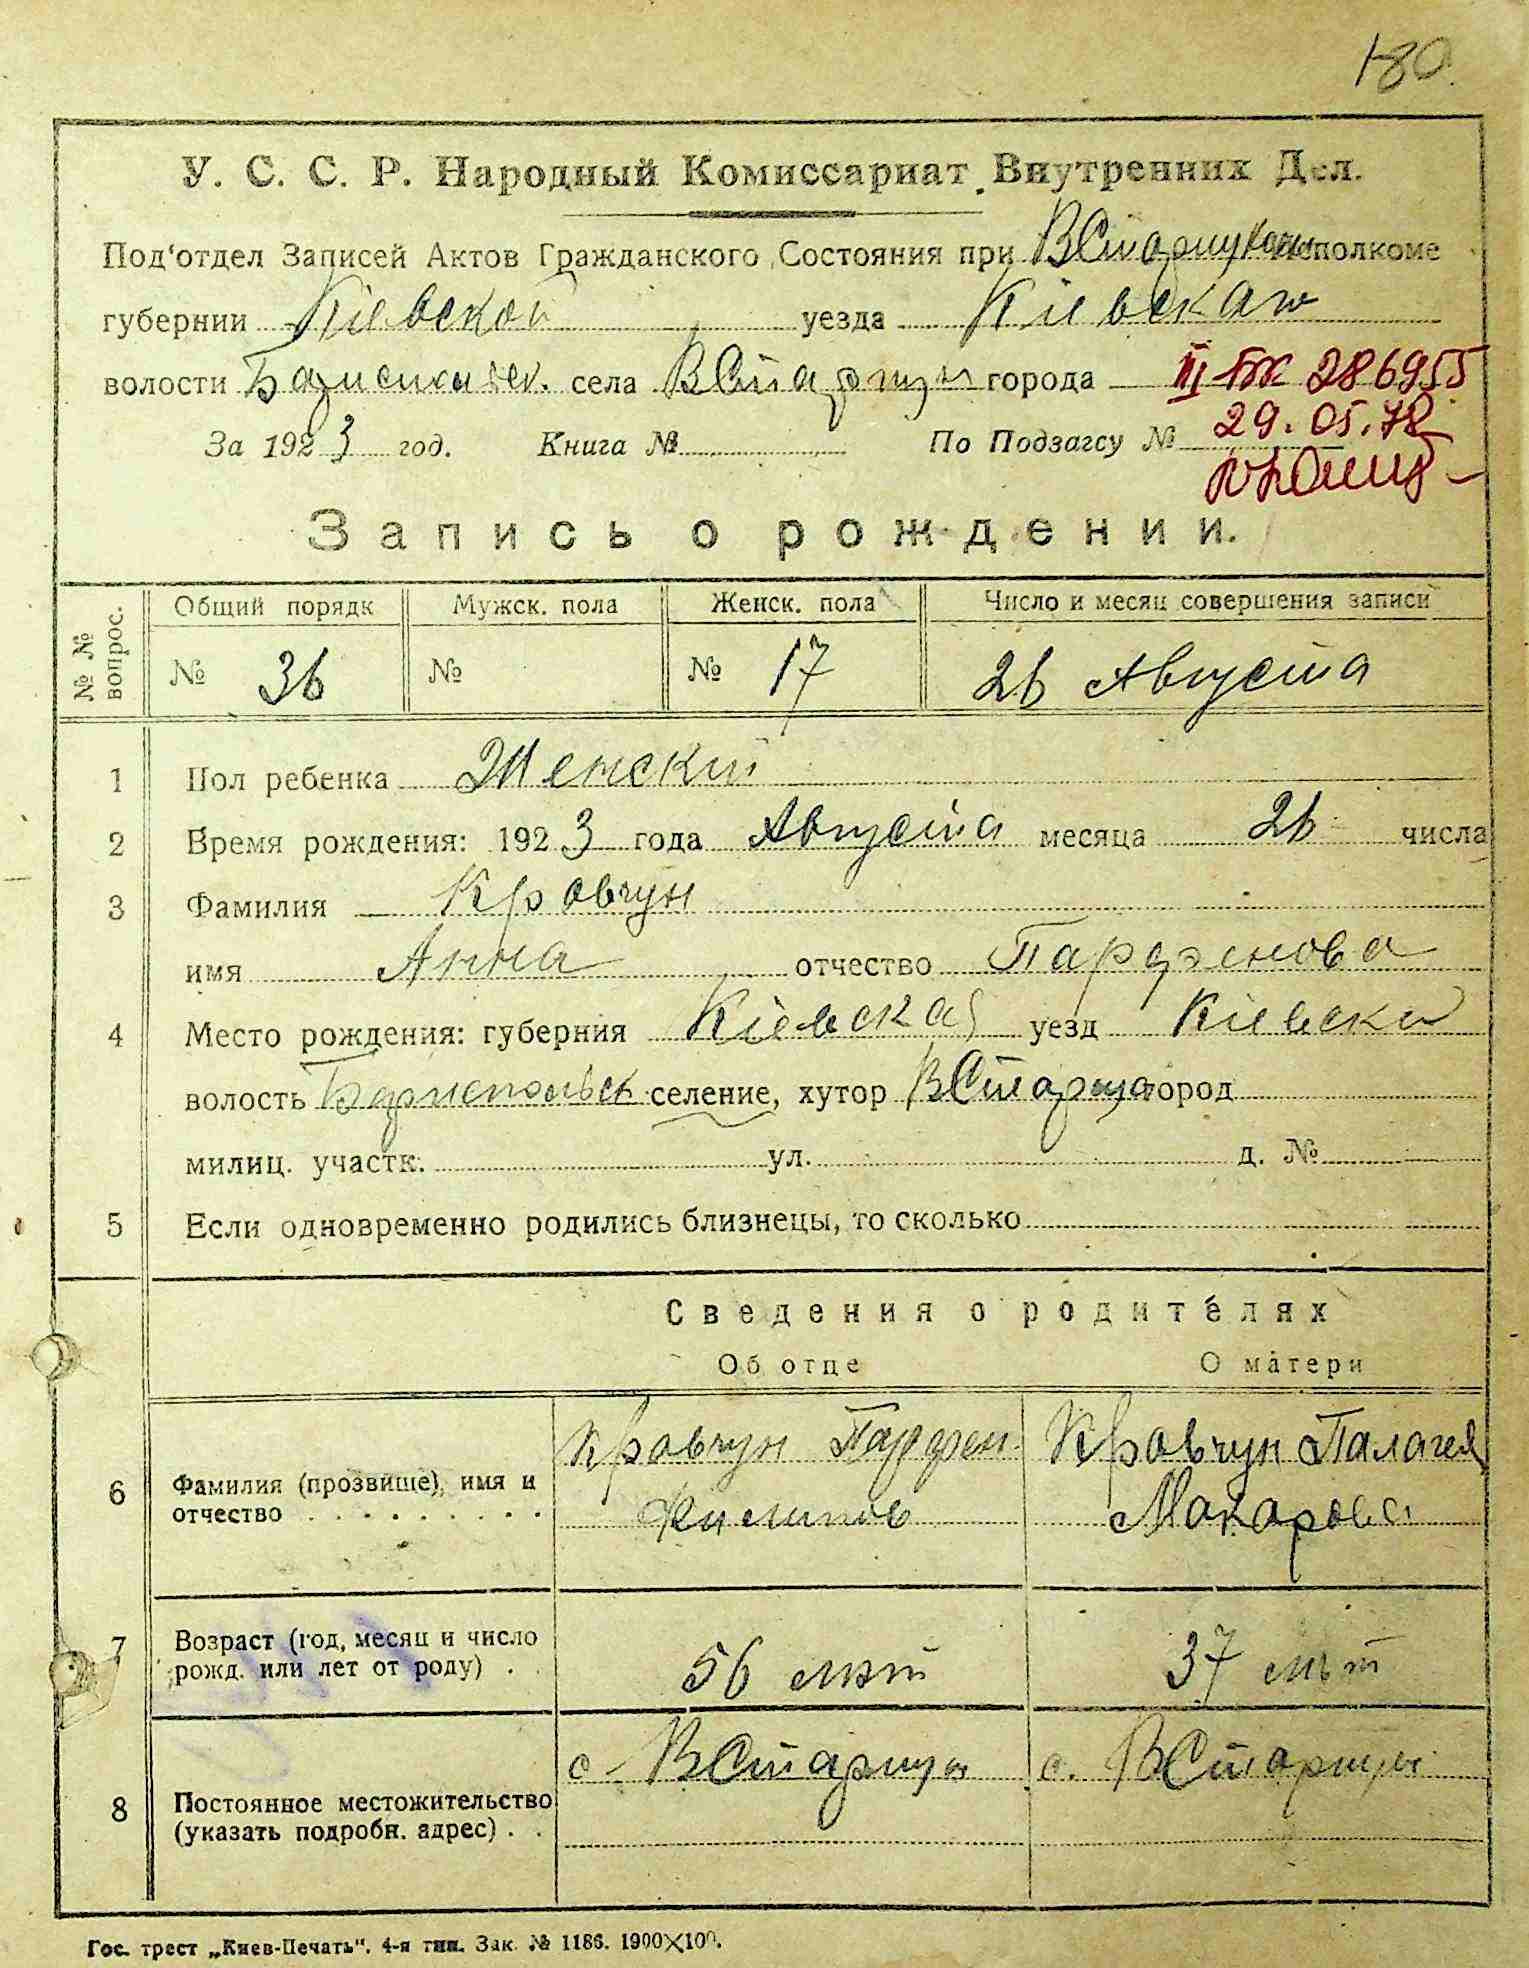 180.
У. С. С. Р. Народный Комиссариат Внутренних Дел.
Под'отдел Записей Актов Гражданского Состояния при исполкоме
губернии Кіевской уезда
волости села ВСтарицы города III БК 286955
За 1923 год. Книга № По Подзагсу № 29.05.78
Запись о рождении.
№ № вопрос. Общий порядк Мужск. пола Женск. пола Число и месяц совершения записи
№ 36 № № 17 26 Августа
1 Пол ребенка Женский
2 Время рождения: 1923 года Августа месяца 26 числа
3 Фамилия Кровчун
имя Анна отчество Парфенова
4 Место рождения: губерния Кіевская уезд Кіевски
волость Бориспольск селение, хутор ВСтарица город
милиц. участк. ул. д. №
5 Если одновременно родились близнецы, то сколько
Сведения о родителях
Об отце О матери
6 Фамилия (прозвище), имя и отчество Кровчун Парфен Филипов Кровчун Палагея Макарова
7 Возраст (год, месяц и число рожд. или лет от роду) 56 лѣт 37 лѣт
8 Постоянное местожительство (указать подробн. адрес) с. ВСтарицы с. ВСтарицы
Гос. трест „Киев-Печать". 4-я тип. Зак. № 1186. 1900×100.